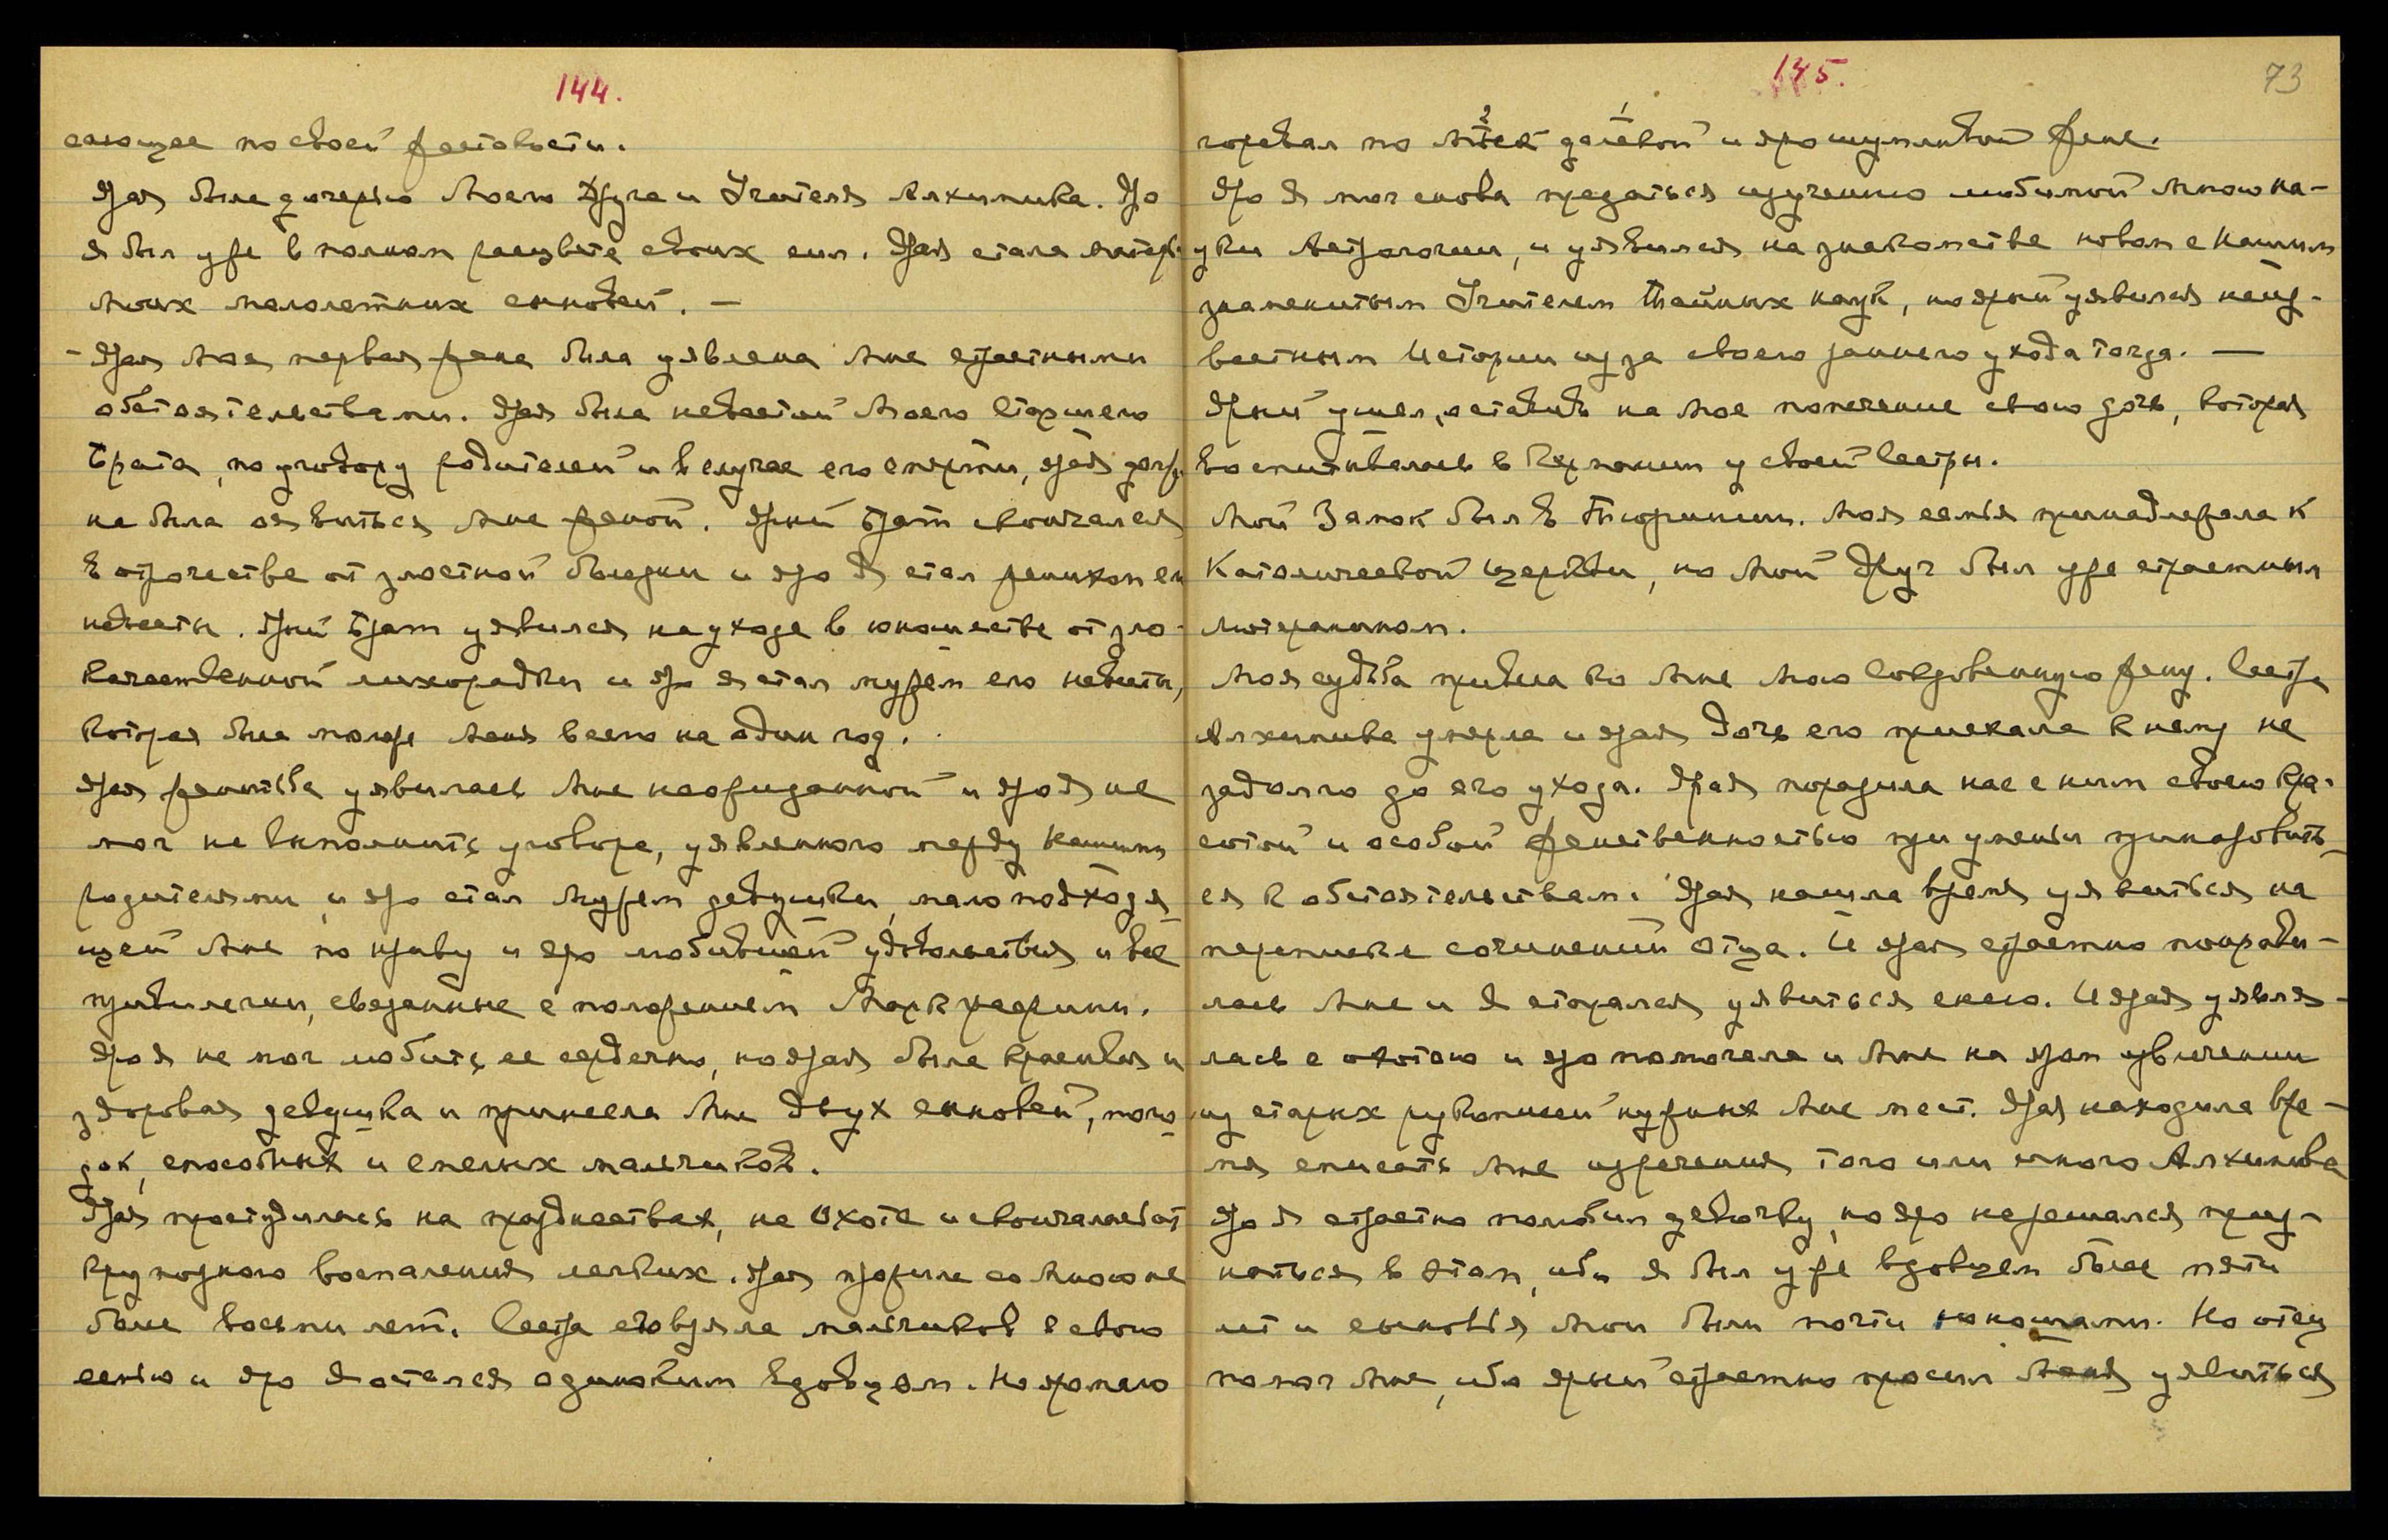 144.
сающее по своей жестокости.
Ярая была дочерью Моего Друга и Учителя Алхимика. Яро
я был уже в полном расцвете своих сил. Ярая стала матерью
Моих малолетних сыновей. —
- Ярая Моя первая жена была уявлена Мне страстными
обстоятельствами. Ярая была невестой Моего Старшего
Брата, по уговору родителей и в случае его смерти, ярая долж-
на была оявиться Мне женой. Ярый Брат скончался
в отрочестве от злостной болезни и яро Я стал женихом его
невесты. Ярый Брат уявился на уходе в юношестве от зло-
качественной лихорадки и яро я стал мужем его невесты,
которая была моложе Меня всего на один год.
Ярая женитьба уявилась Мне неожиданной и яро Я не
мог не выполнить уговора, уявленного между нашими
родителями, и яро стал Мужем девушки, мало подходя-
щей Мне по нраву и яро любившей удовольствия и все
привилегии, связанные с положением Маркграфини.
Яро Я не мог любить ее сердечно, но ярая была красивая и
здоровая девушка и принесла Мне двух сыновей, моло-
дых, способных и смелых мальчиков.
Ярая простудилась на празднествах, на Охоте и скончалась от
крупозного воспаления легких. Ярая прожила со Мною не
более восьми лет. Сестра его взяла мальчиков в свою
семью и яро Я остался одиноким вдовцом. Но яро мало
145.
73
горевал по Моей далекой и яро шумливой жене.
Яро Я мог снова предаться изучению любимой Мною на-
уки Астрологии, и уявился на знакомстве новом с нашим
знаменитым Учителем Тайных наук, но ярый уявился неиз-
вестным Истории из за своего раннего ухода тогда. —
Ярый ушел, оставив на Мое попечение свою дочь, которая
воспитывалась в Германии у своей Сестры.
Мой Замок был в Тюрингии. Моя семья принадлежала к
Католической церкви, но Мой Друг был уже страстным
лютеранином.
Моя судьба привела ко Мне Мою Сокровенную жену. Сестра
Алхимика умерла и ярая Дочь его приехала к нему не
задолго до его ухода. Ярая поразила нас с ним своею кра-
сотой и особой женственностью при умении приноровить-
ся к обстоятельствам. Ярая нашла время уявиться на
переписке сочинений Отца. И ярая страстно понрави-
лась Мне и Я старался уявиться с нею. И ярая уявля-
лась с охотою и яро помогала и Мне на яром извлечении
из старых рукописей нужных Мне мест. Ярая находила вре-
мя списать Мне изречения того или иного Алхимика
Яро Я страстно полюбил девочку, но яро не решался приз-
наться в этом, ибо Я был уже вдовцем более пяти
лет и сыновья Мои были почти юношами. Но отец
помог Мне, ибо ярый страстно просил Меня уявиться